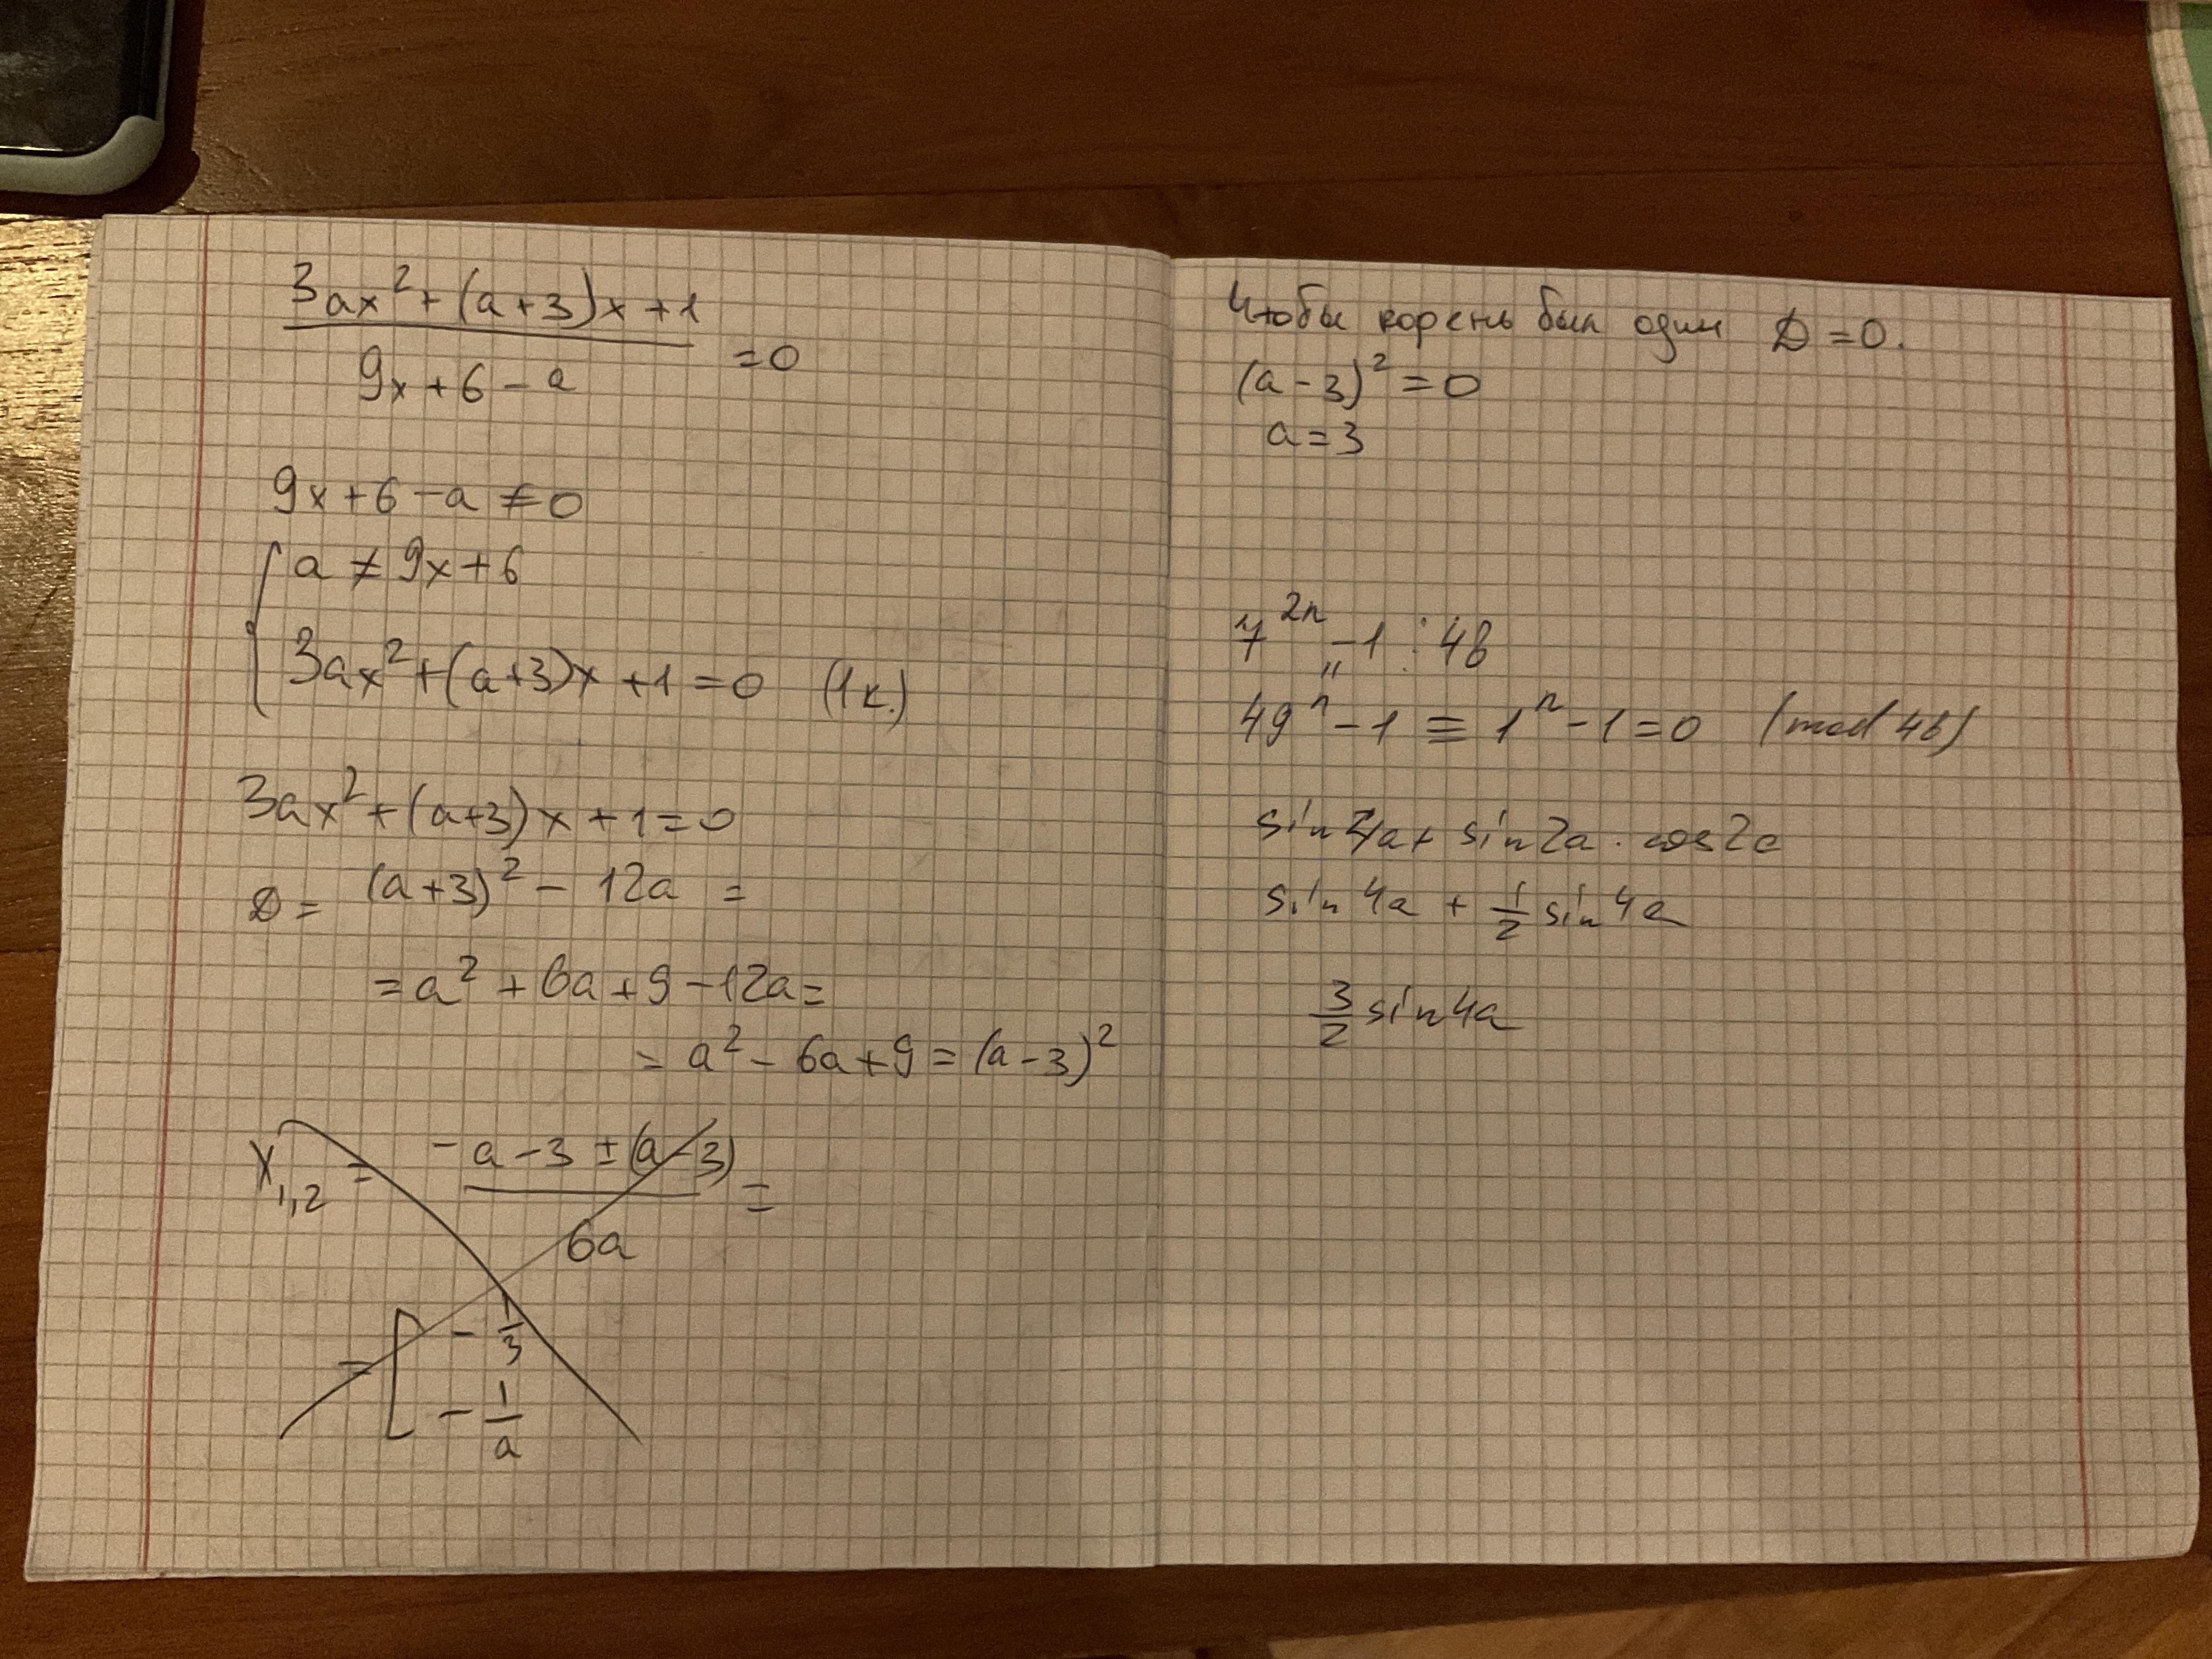 3ax² + (a+3)x + 1
9x + 6 - a
= 0
9x + 6 - a ≠ 0
a ≠ 9x + 6
3ax² + (a+3)x + 1 = 0 (1 к.)
3ax² + (a+3)x + 1 = 0
D = (a+3)² - 12a =
= a² + 6a + 9 - 12a =
= a² - 6a + 9 = (a-3)²
x₁,₂ = -a - 3 ± (a-3) =
6a
= [ - 1/3
- 1/a
Чтобы корень был один D = 0.
(a-3)² = 0
a = 3
7²ⁿ - 1 ⋮ 48
49ⁿ - 1 ≡ 1ⁿ - 1 = 0 (mod 48)
sin 4a + sin 2a · cos 2a
sin 4a + 1/2 sin 4a
3/2 sin 4a